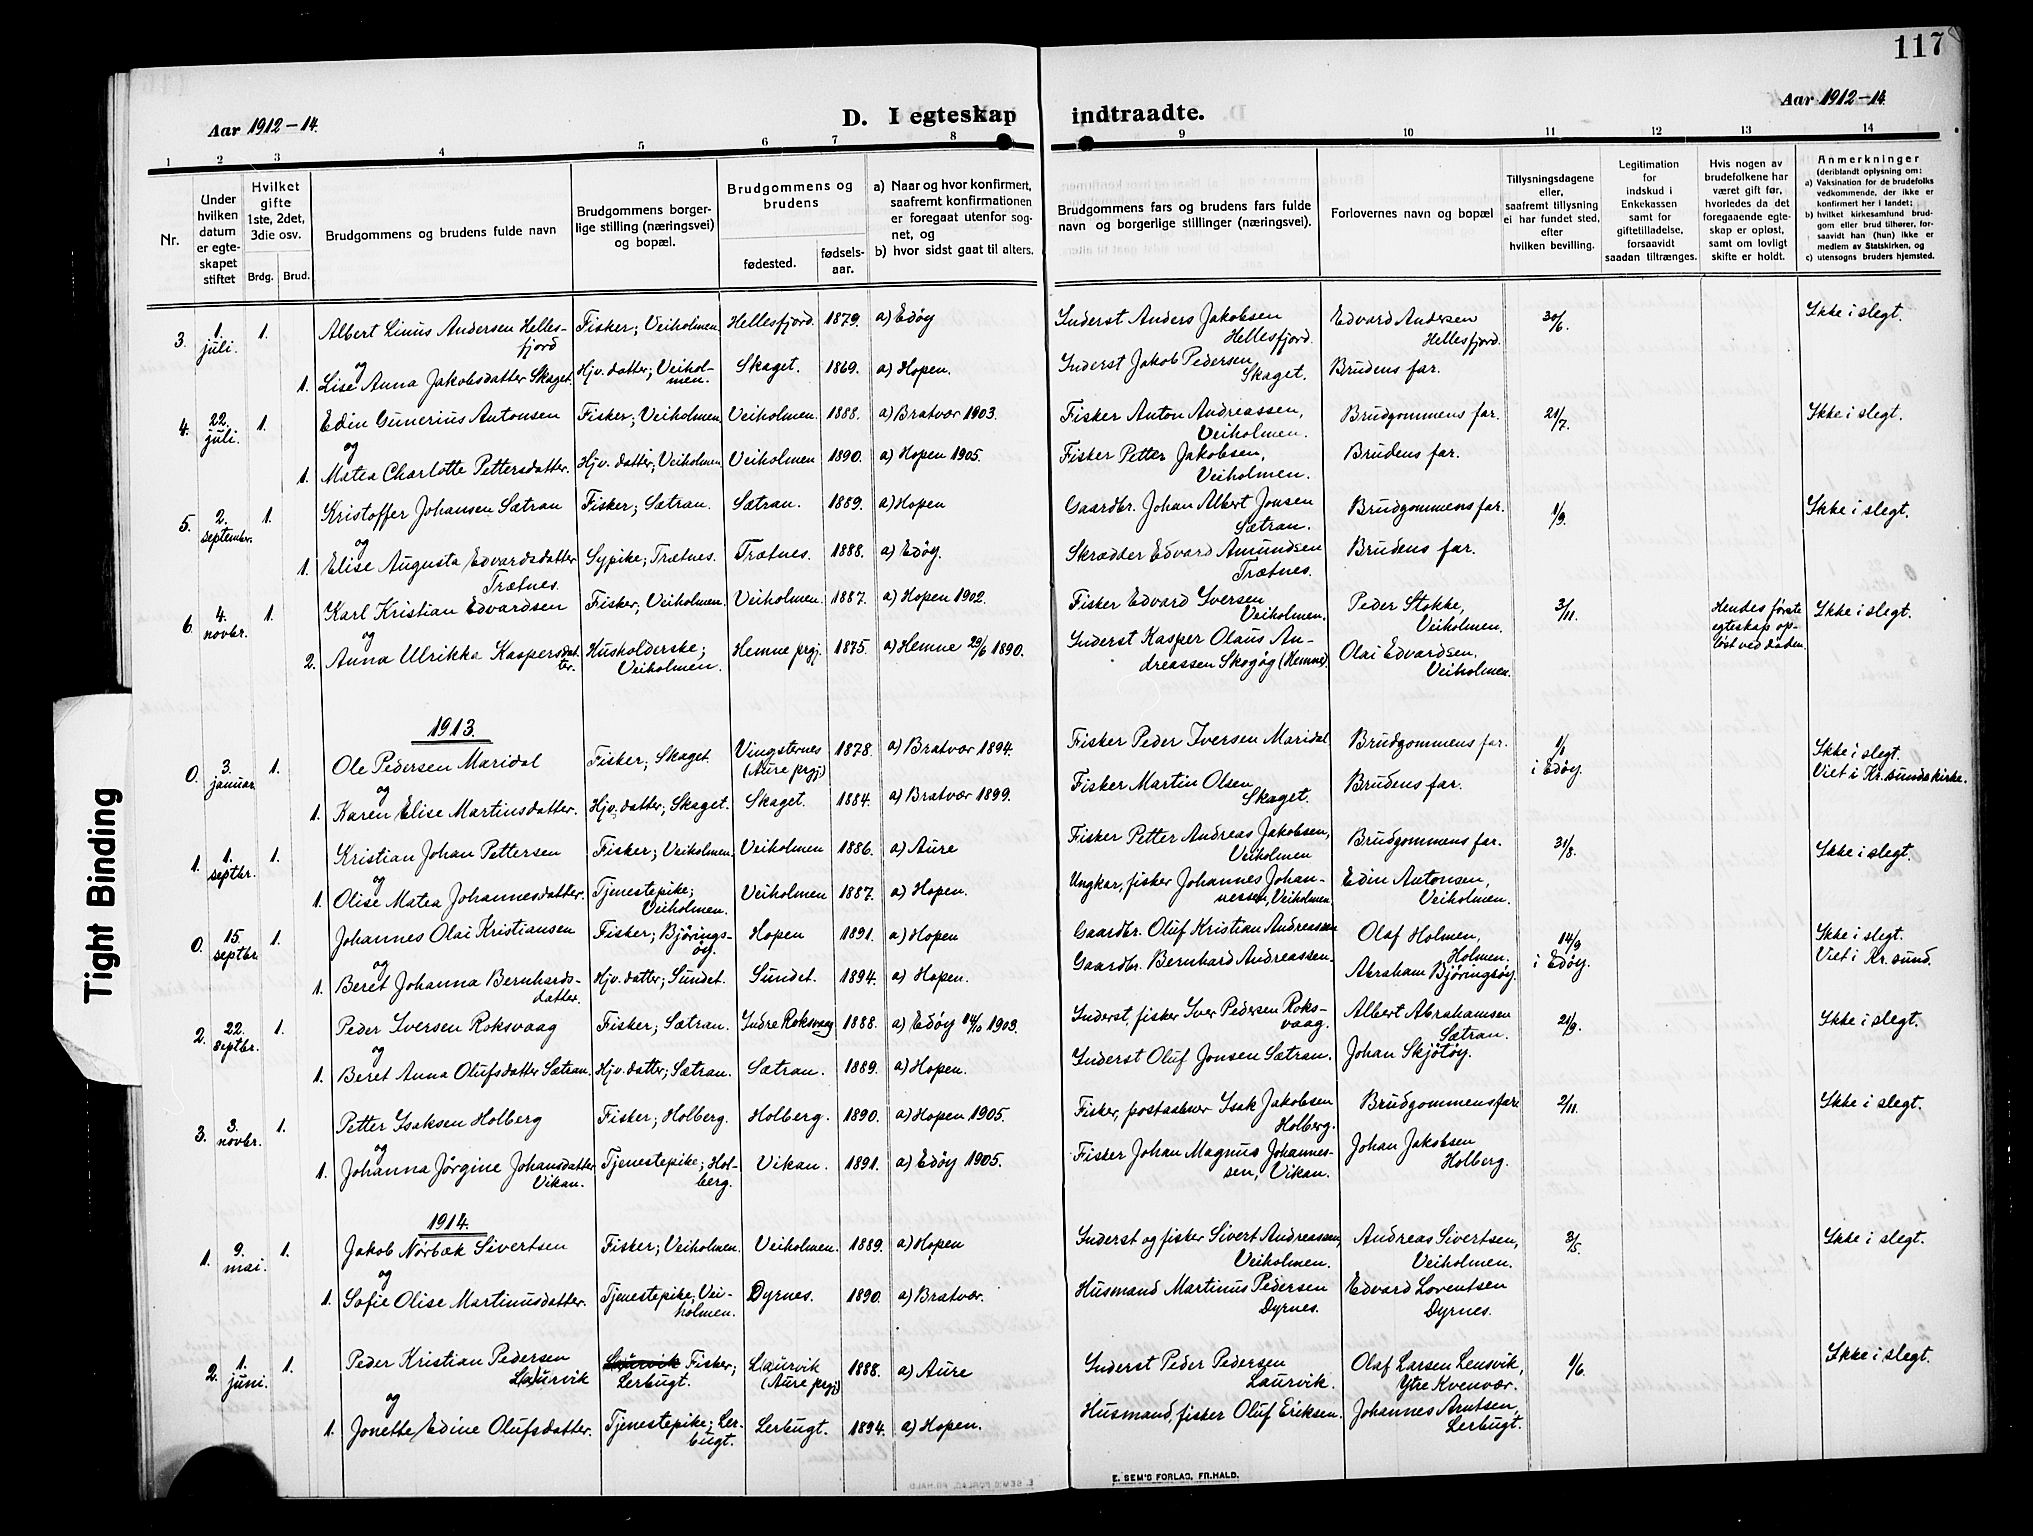 117
Aar 1912–14.
D. I egteskap indtraadte.
Aar 1912–14.
1 2 3 4 5 6 7 8 9 10 11 12 13 14
Nr.
Under
hvilken
datum
er egte-
skapet
stiftet
Hvilket
gifte
1ste, 2det,
3die osv.
Brdg. Brud.
Brudgommens og brudens fulde navn
Brudgommens borger-
lige stilling (næringsvei)
og bopæl.
Brudgommens og
brudens
fødested.
fødsels-
aar.
a) Naar og hvor konfirmert,
saafremt konfirmationen
er foregaat utenfor sog-
net, og
b) hvor sidst gaat til alters.
Brudgommens fars og brudens fars fulde
navn og borgerlige stillinger (næringsvei).
Forlovernes navn og bopæl
Tillysningsdagene
eller,
saafremt tillysning
ei har fundet sted,
efter
hvilken bevilling.
Legitimation
for
indskud i
Enkekassen
samt for
giftetilladelse,
forsaavidt
saadan tiltrænges.
Hvis nogen av
brudefolkene har
været gift før,
hvorledes da det
foregaaende egte-
skap er opløst,
samt om lovligt
skifte er holdt.
Anmerkninger
(deriblandt oplysning om:
a) Vaksination for de brudefolks
vedkommende, der ikke er
konfirmert her i landet;
b) hvilket kirkesamfund brud-
gom eller brud tilhører, for-
saavidt han (hun) ikke er
medlem av Statskirken, og
c) utensogns bruders hjemsted.
3. 1. juli. 1. Albert Linus Andersen Helles-
fjord Fisker; Veiholmen. Hellesfjord. 1879. a) Edøy Inderst Anders Jakobsen
Hellesfjord. Edvard Andersen
Hellesfjord. 30/6. Ikke i slegt.
og
1. Lise Anna Jakobsdatter Skaget. Hjv. datter; Veihol-
men. Skaget. 1869. a) Hopen. Inderst Jakob Pedersen
Skaget. Brudens far.
4. 22. juli. 1. Edin Gunerius Antonsen Fisker; Veiholmen. Veiholmen. 1888. a) Bratvær 1903. Fisker Anton Andreassen,
Veiholmen. Brudgommens far. 21/7. Ikke i slegt.
og
1. Matea Charlotte Pettersdatter. Hjv. datter; Veiholmen Veiholmen 1890. a) Hopen 1905. Fisker Petter Jakobsen,
Veiholmen. Brudens far.
5. 2. septembr. 1. Kristoffer Johansen Sætran Fisker; Sætran. Sætran. 1889. a) Hopen Gaardbr. Johan Albert Jonsen
Sætran. Brudgommens far. 1/9. Ikke i slegt.
og
1. Elise Augusta Edvardsdatter
Trætnes. Sypike; Trætnes. Trætnes. 1888. a) Edøy. Skrædder Edvard Amundsen
Trætnes. Brudens far.
6. 4. novbr. 1. Karl Kristian Edvardsen Fisker; Veiholmen. Veiholmen. 1887. a) Hopen 1902. Fisker Edvard Iversen
Veiholmen. Peder Stokke,
Veiholmen. 3/11. Hendes første
egteskap op-
løst ved døden. Ikke i slegt.
og
2. Anna Ulrikka Kaspersdat-
ter. Husholderske;
Veiholmen. Hemne prgj. 1875. a) Hemne 29/6 1890. Inderst Kasper Olaus An-
dreassen Skogøg (Hemne). Olai Edvardsen,
Veiholmen.
1913.
0. 3. januar. 1. Ole Pedersen Maridal Fisker; Skaget. Vingsternes
(Aure prgj) 1878. a) Bratvær 1894. Fisker Peder Iversen Maridal Brudgommens far. 1/1
i Edøy. Ikke i slegt.
Viet i Kr.sunds kirke.
og
1. Karen Elise Martinsdatter. Hjv. datter; Skaget. Skaget. 1884. a) Bratvær 1899. Fisker Martin Olsen
Skaget. Brudens far.
1. 1. septbr. 1. Kristian Johan Pettersen Fisker; Veiholmen. Veiholmen 1886. a) Aure Fisker Petter Andreas Jakobsen,
Veiholmen Brudgommens far. 31/8. Ikke i slegt.
og
1. Olise Matea Johannesdatter. Tjenestepike;
Veiholmen. Veiholmen 1887. a) Hopen. Ungkar, fisker Johannes Johan-
nessen, Veiholmen. Edin Antonsen,
Veiholmen.
0. 15. septbr. 1. Johannes Olai Kristiansen Fisker; Bjørings-
øy. Hopen 1891. a) Hopen Gaardbr. Oluf Kristian Andreassen Olaf Holmen,
Holmen. 14/9
i Edøy. Ikke i slegt.
Viet i Kr.sund.
og
1. Beret Johanna Bernhards-
datter. Hjv. datter; Sundet. Sundet. 1894. a) Hopen. Gaardbr. Bernhard Andreassen. Abraham Bjøringsøy.
2. 22. septbr. 1. Peder Iversen Roksvaag Fisker; Sætran. Indre Roksvaag 1888. a) Edøy 14/10 1903. Inderst, fisker Iver Pedersen Roks-
vaag. Albert Abrahamsen
Sætran. 21/9. Ikke i slegt.
og
1. Beret Anna Olufsdatter Sætran. Hjv. datter; Sætran. Sætran. 1889. a) Hopen. Inderst Oluf Jonsen Sætran. Johan Skjøtøy.
3. 3. novbr. 1. Petter Isaksen Holberg Fisker; Holberg. Holberg. 1890. a) Hopen 1905. Fisker, postaabner Isak Jakobsen
Holberg. Brudgommens far. 2/11. Ikke i slegt.
og
1. Johanna Jørgine Johansdatter
Vikan. Tjenestepike; Hol-
berg. Vikan. 1891. a) Edøy 1905. Fisker Johan Magnus Johannes-
sen, Vikan. Johan Jakobsen
Holberg.
1914.
1. 9. mai. 1. Jakob Nørbæk Sivertsen Fisker; Veiholmen. Veiholmen. 1889. a) Hopen Inderst og fisker Sivert Andreassen,
Veiholmen. Andreas Sivertsen,
Veiholmen. 3/5. Ikke i slegt.
og
1. Sofie Olise Martinusdatter. Tjenestepike, Vei-
holmen. Dyrnes. 1890. a) Bratvær. Husmand Martinus Pedersen
Dyrnes. Edvard Lorentsen
Dyrnes.
2. 1. juni. 1. Peder Kristian Pedersen
Laurvik Laurvik Fisker;
Lerbugt. Laurvik
(Aure prgj) 1888. a) Aure Inderst Peder Pedersen
Laurvik. Olaf Larsen Lensvik,
Ytre Kvenvær. 1/6. Ikke i slegt.
og
1. Jonette Edine Olufsdatter. Tjenestepike; Ler-
bugt. Lerbugt. 1894. a) Hopen. Husmand, fisker Oluf Eriksen. Johannes Arntsen,
Lerbugt.
E. SEM'S FORLAG, FR.HALD.
Tight Binding